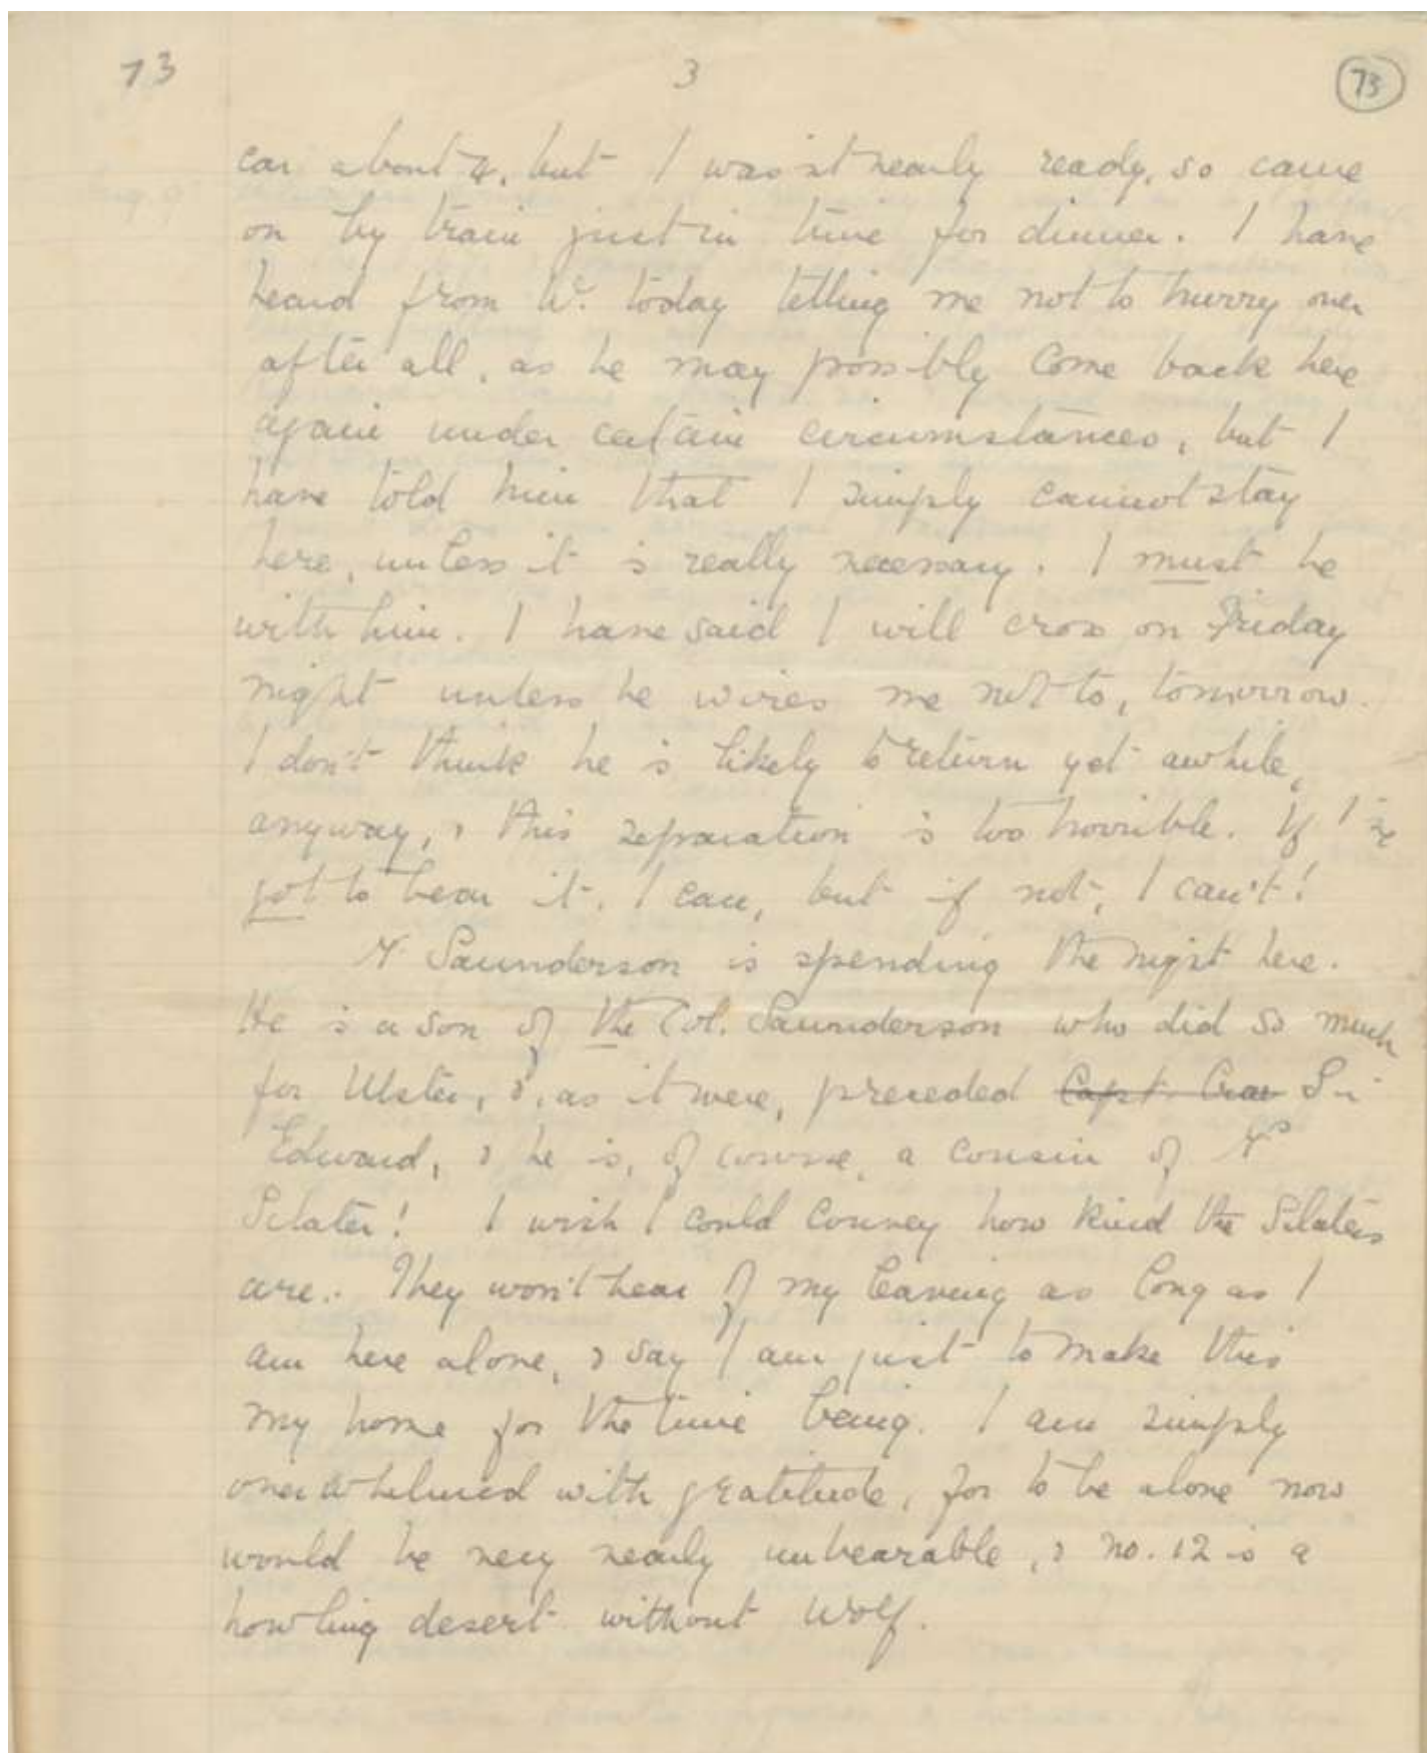 73 3 73
car about 4, but I wasn't nearly ready, so came
on by train just in time for dinner. I have
heard from W. today telling me not to hurry over
after all, as he may possibly come back here
again under certain circumstances, but I
have told him that I simply cannot stay
here, unless it is really necessary. I must be
with him. I have said I will cross on Friday
night unless he wires me not to, tomorrow.
I don't think he is likely to return yet awhile,
anyway, & this separation is too horrible. If I've
got to bear it, I can, but if not, I can't!
Mr. Saunderson is spending the night here.
He is a son of the Col. Saunderson who did so much
for Ulster, &, as it were, preceded Capt. Crai Sir
Edward, & he is, of course, a cousin of Mrs
Sclater! I wish I could convey how kind the Sclaters
are. They won't hear of my leaving as long as I
am here alone, & say I am just to make this
my home for the time being. I am simply
overwhelmed with gratitude, for to be alone now
would be very nearly unbearable, & no. 12 is a
howling desert without Wolf.